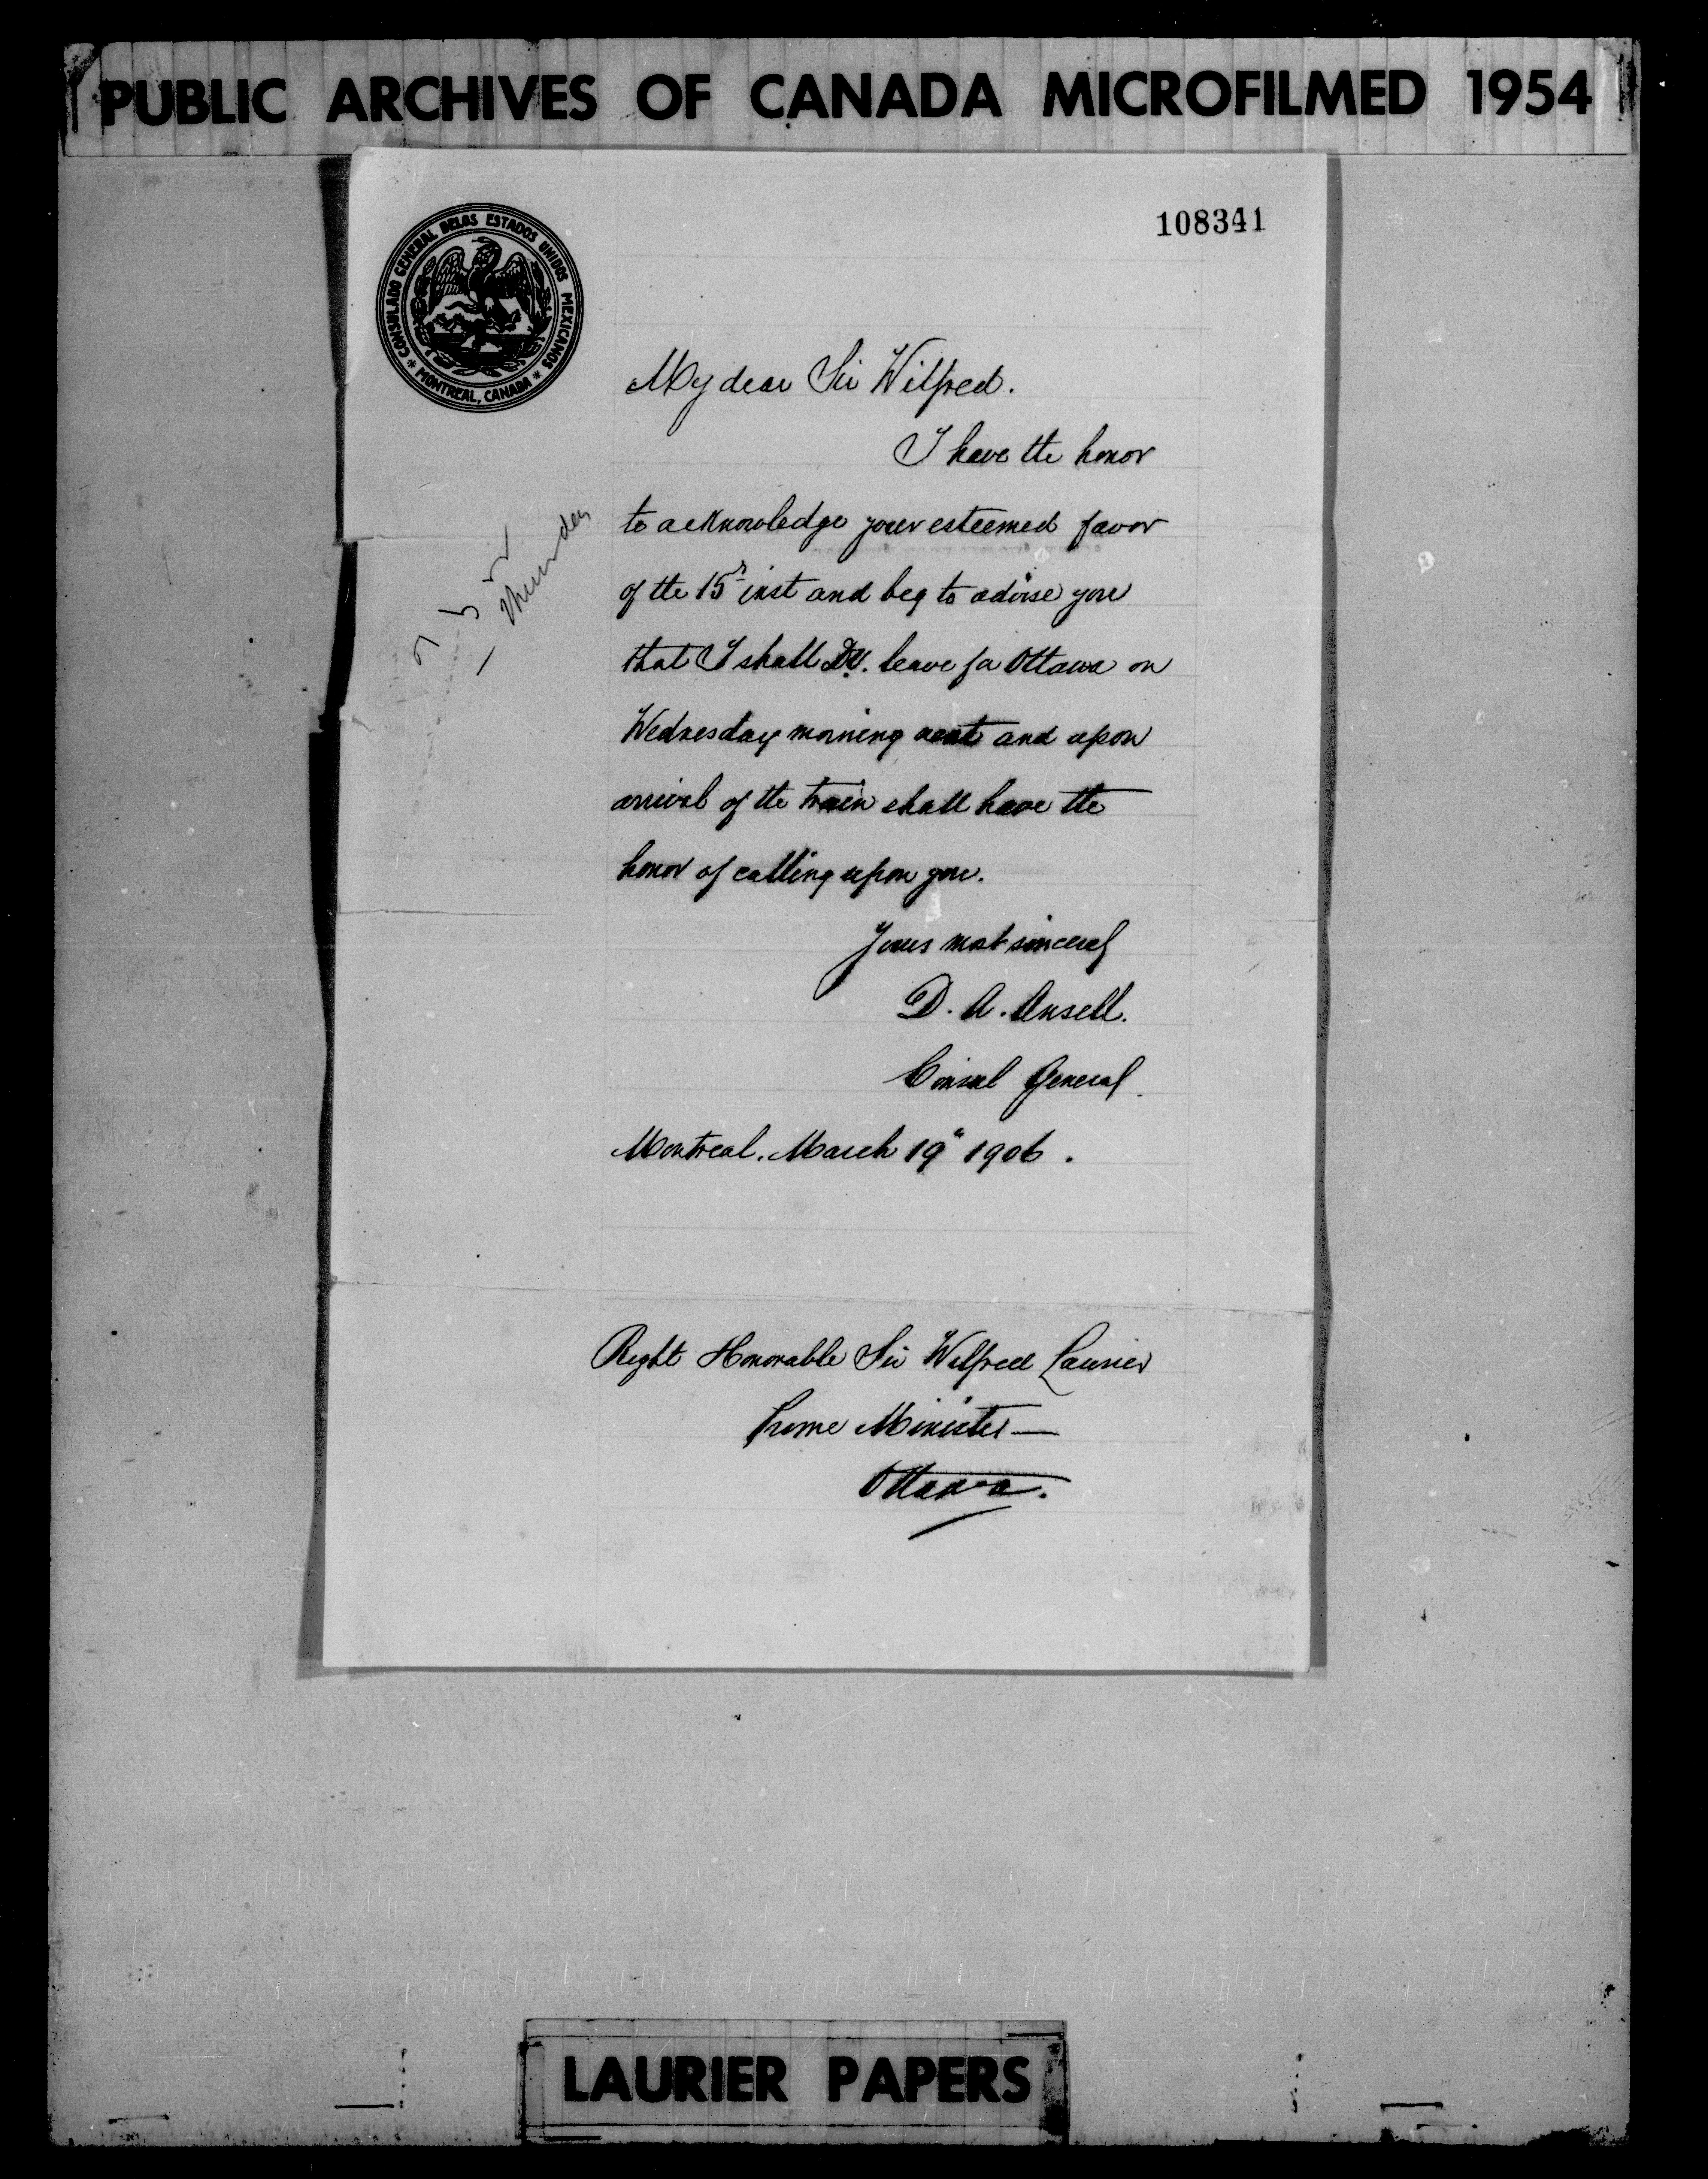 PUBLIC ARCHIVES OF CANADA MICROFILMED 1954
108341
CONSULADO GENERAL DE LOS ESTADOS UNIDOS MEXICANOS
* MONTREAL, CANADA *
My dear Sir Wilfred.
I have the honor
to acknowledge your esteemed favor
of the 15 inst and beg to advise you
that I shall D.V. leave for Ottawa on
Wednesday morning next and upon
arrival of the train shall have the
honor of calling upon you.
Yours most sincerely
D. A. Ansell.
Consul General.
Montreal. March 19" 1906.
Right Honorable Sir Wilfred Laurier
Prime Minister —
Ottawa.
LAURIER PAPERS